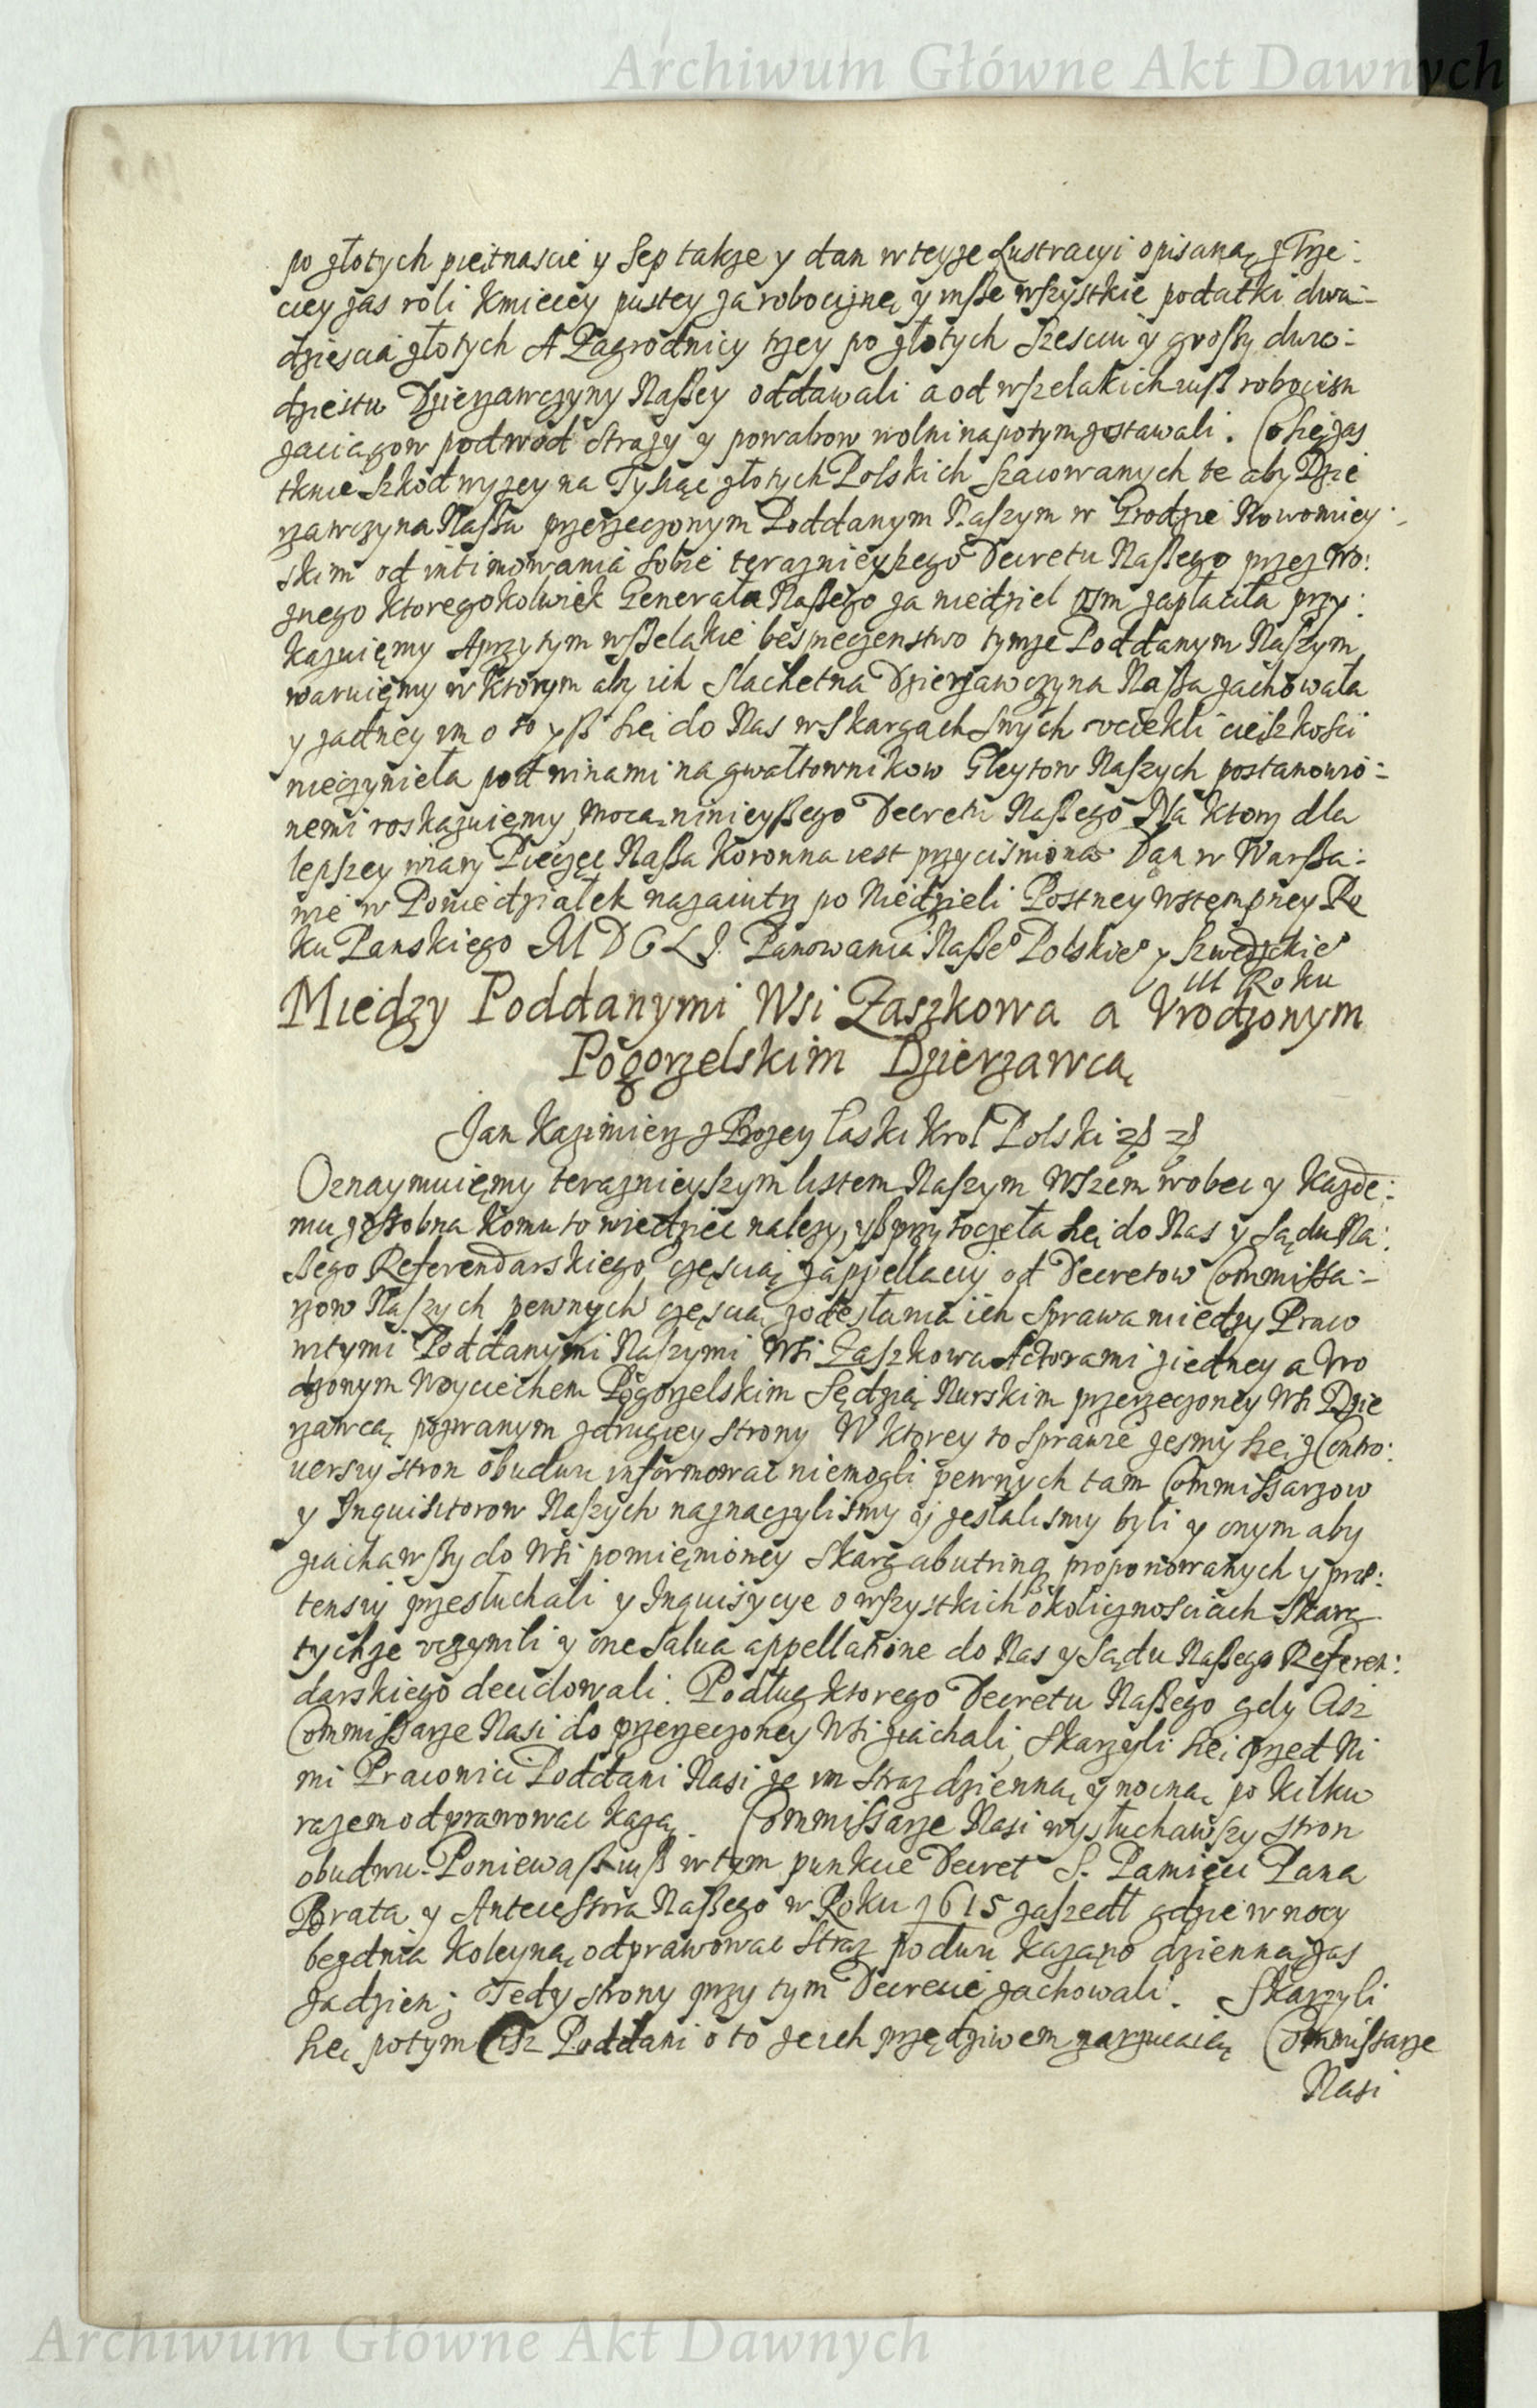 Archiwum Główne Akt Dawnych
po złotych piętnascie y Sep takze y dan w teyze Lustracyi opisaną z Trze:
ciey zas roli kmiecey pustey za robociznę y insze wszystkie podatki dwa-
dziescia złotych A Zagrodnicy trzey po złotych szesciu y groszy dwa-
dziestu Dzierzawczyny Naszey oddawali a od wszelakich iusz robocizn
zaciągow podwod Strazy y powabow wolni napotym zostawali. Co się zas
tknie szkod wyzey na Tysiąc złotych Polskich szacowanych te aby Dzie
rzawczyna Nasza przerzeczonym Poddanym Naszym w Grodzie Nowomiey-
skim od intimowania sobie teraznieyszego Decretu Naszego przez Wo:
znego ktoregokolwiek Generała Naszego za niedziel osm zapłaciła przy:
kazuięmy A przy tym wszelakie bespieczenstwo tymze Poddanym Naszym
waruięmy w ktorym aby ich Slachetna Dzierzawczyna Nasza zachowała
y zadney im o to ysz się do Nas w Skargach swych vciekli cięszkosci
nieczyniela pod winami na gwałtownikow Gleytow Naszych postanowio-
nemi roskazuięmy, mocą ninieyszego Decretu Naszego Na ktory dla
lepszey wiary Pieczęc Nasza Koronna iest przycisniona Dan w Warsza-
wie w Poniedziałek nazaiutrz po Niedzieli Postney Wstempney Ro
ku Panskiego MDCLI. Panowania Nasze° Polskie° y Szwedzkie°
III Roku
Miedzy Poddanymi Wsi Zaszkowa a Vrodzonym
Pogorzelskim Dzierzawcą
Jan Kazimierz z Bozey Łaski Krol Polski
Oznaymuięmy teraznieyszym listem Naszym Wszem wobec y kazde:
mu zosobna komu to wiedziec nalezy, ysz przytoczeła się do Nas y Sądu Na:
szego Referendarskiego częscią z appellacij od Decretow Commissa-
rzow Naszych pewnych częscią z odesłania ich Sprawa miedzy Praco
witymi Poddanymi Naszymi Wsi Zaszkowa Actorami z iedney a Vro
dzonym Woyciechem Pogorzelskim Sędzią Nurskim przerzeczoney Wsi Dzie
rzawcą pozwanym z drugiey strony W ktorey to Sprawie zesmy się z Contro:
uersiy stron obudwu informowac niemogli pewnych tam Commissarzow
y Inquisitorow Naszych naznaczylismy y zeslalismy byli y onym aby
ziachawszy do Wsi pomięnioney skarg abutrinq proponowanych y prę:
tensiy przesłuchali y Inquisycye o wszystkich okolicznosciach skarg
tychze vczynili y one salua appellatione do Nas y Sądu Naszego Referen:
darskiego decidowali. Podług ktorego Decretu Naszego gdy Cisz
Commissarze Nasi do przerzeczoney Wsi ziachali, Skarzyli się przed Ni
mi Pracowici Poddani Nasi ze im straz dzienną y nocną po kilku
razem odprawowac kazą. Commissarze Nasi wysłuchawszy stron
obudwu. Poniewasz iusz w tym punkcie Decret S. Pamięci Pana
Brata y Antecessora Naszego w Roku 1615 zaszedł gdzie w nocy
bezdnia koleyną odprawowac straz po dwu kazano dzienną zas
zadzien; Tedy strony przy tym Decrecie zachowali. Skarzyli
się potym Cisz Poddani o to ze ich przędziwem narzucaią Commissarze
Nasi
Archiwum Główne Akt Dawnych